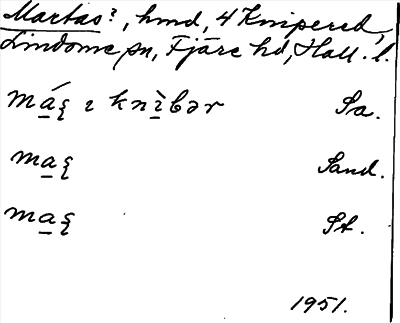 Martas?, hmd, 4 Knipered,
Lindome sn, Fjäre hd, Hall. l.
má̱ʂ ɪ knì̱bər Sa.
ma̱ʂ Sand.
ma̱ʂ St.
1951.